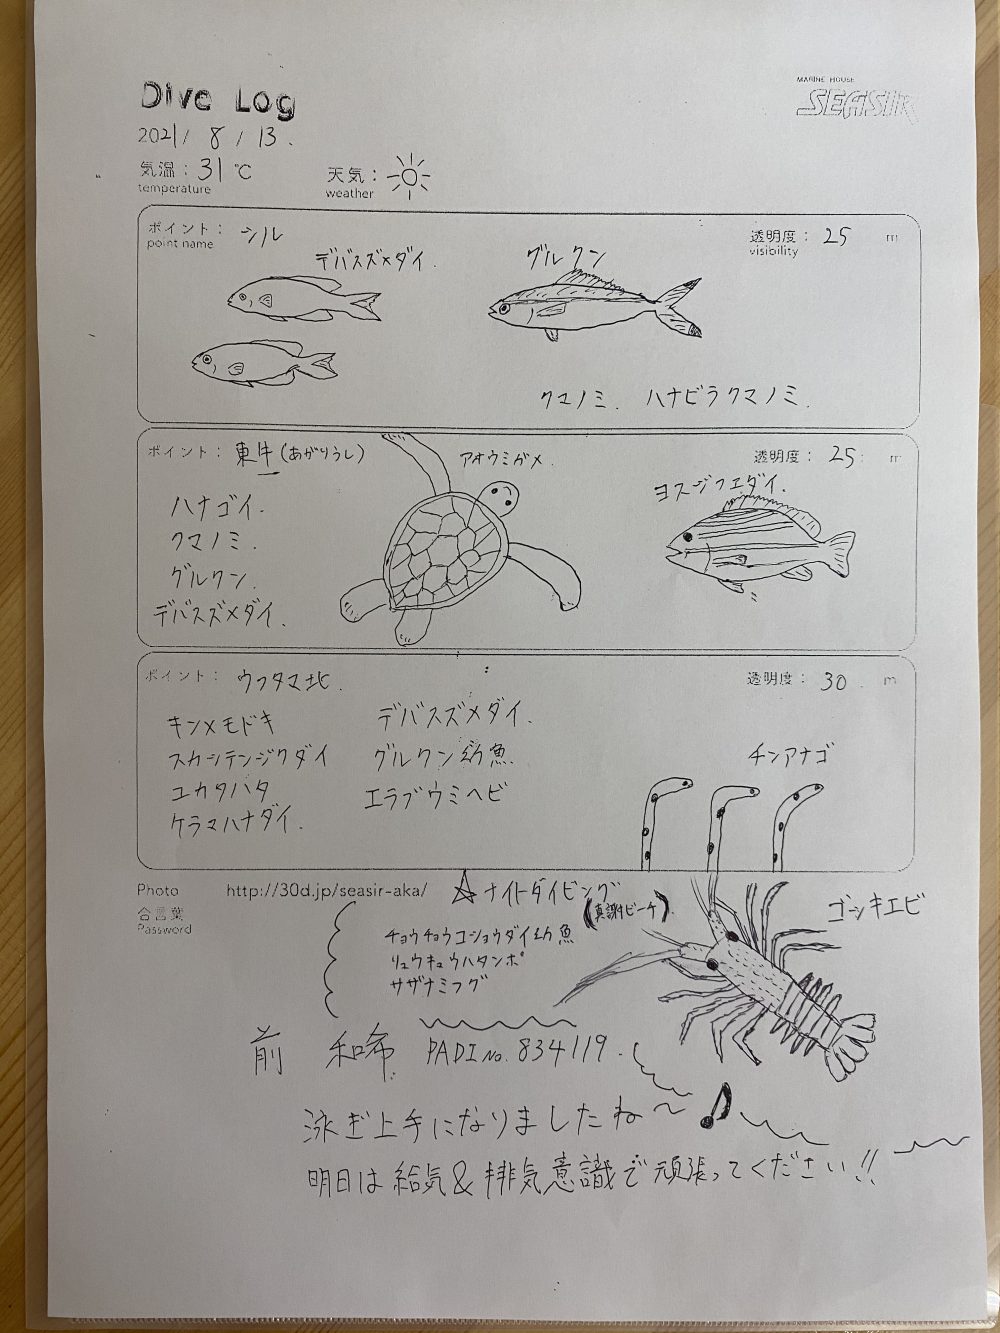 Dive Log
MARINE HOUSE
SEASIR
2021 / 8 / 13.
気温：31℃
temperature
天気：
weather
ポイント：シル
point name
透明度：25 m
visibility
デバスズメダイ.
グルクン
クマノミ. ハナビラクマノミ.
ポイント：東牛(あがりうし)
透明度：25 m
アオウミガメ.
ヨスジフエダイ.
ハナゴイ.
クマノミ.
グルクン.
デバスズメダイ.
ポイント：ウフタマ北.
透明度：30 m
キンメモドキ
スカシテンジクダイ
ユカタハタ
ケラマハナダイ.
デバスズメダイ.
グルクン幼魚.
エラブウミヘビ
チンアナゴ
Photo http://30d.jp/seasir-aka/
合言葉
Password
☆ナイトダイビング
(真謝ビーチ).
チョウチョウコショウダイ幼魚
リュウキュウハタンポ
サザナミフグ
ゴシキエビ
前 和希 PADI No. 834119.
泳ぎ上手になりましたね〜♪
明日は給気&排気意識で頑張ってください!!